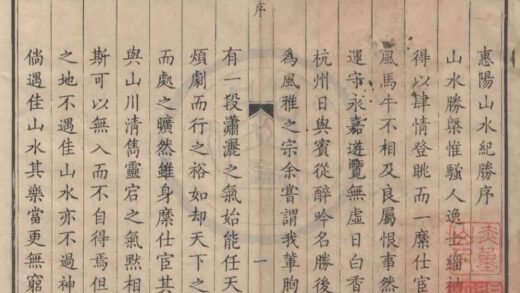 惠陽山水紀勝序
山水勝槩惟騷人逸士緇衲
得以肆情登眺而一縻仕宦
風馬牛不相及良屬恨事然
運守永嘉遊覽無虛日白香
杭州日與賓從醉吟名勝後
為風雅之宗余嘗謂我輩胸
序
一
有一段瀟灑之氣始能任天
煩劇而行之裕如却天下之
而處之曠然雖身縻仕宦其
與山川清雋靈宕之氣黙相
斯可以無入而不自得焉但
之地不遇佳山水亦不過神
倘遇佳山水其樂當更無窮